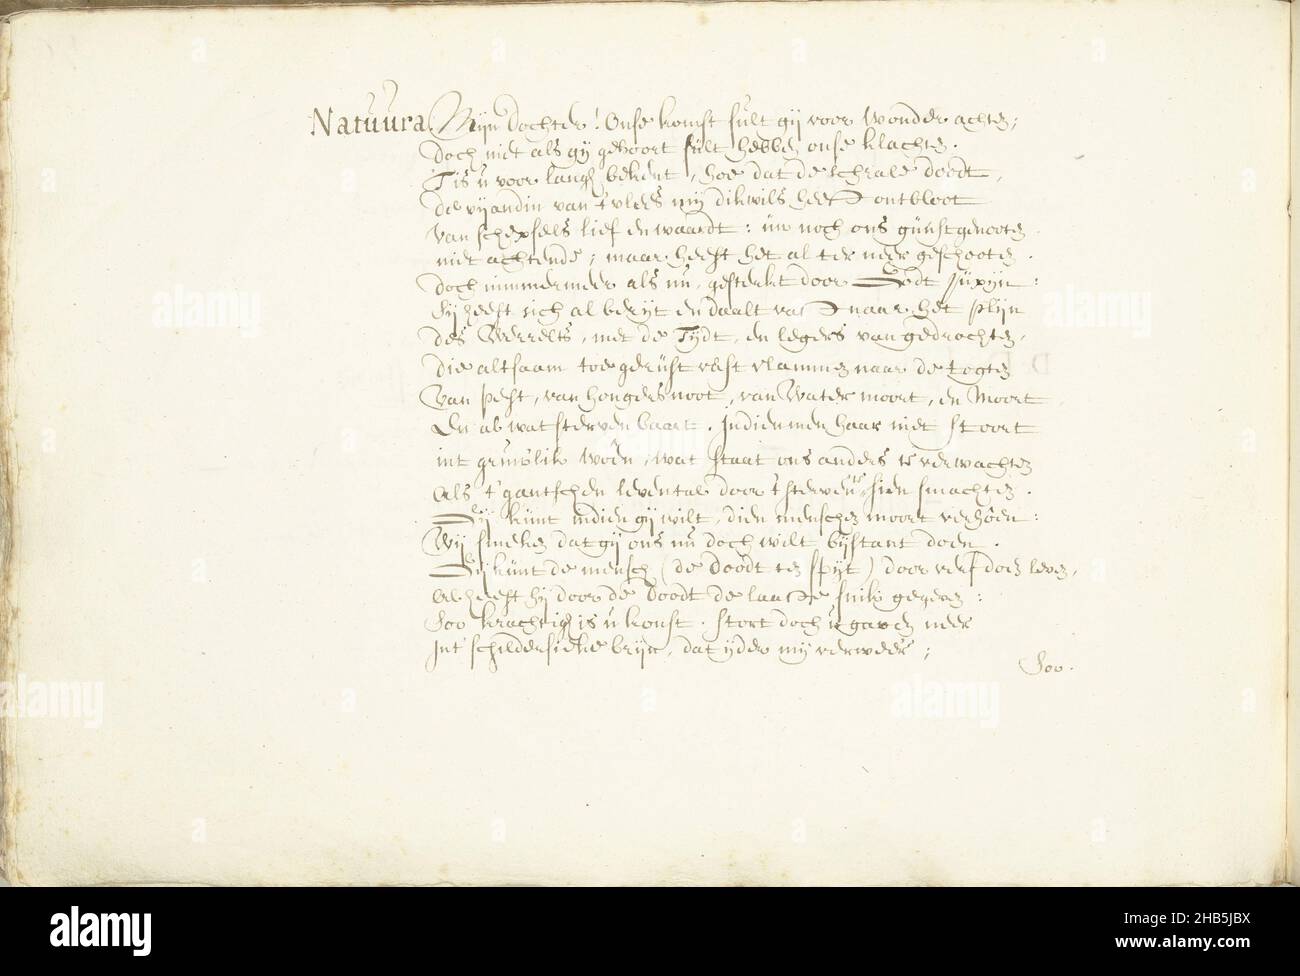 Natuura. Mijn dochter! Onse komst sult gij voor wonder achten;
doch niet als gij gehoort sult hebben onse klachten.
Tis u voor langh bekent, hoe dat de schrale doodt,
de vijandin van 't vlees mij dikwils heeft ontbloot
van schepsels lief en waardt: un noch ons gunstgenooten
niet achtende; maar heeft het al ter neer geschooten.
doch nimmermeer als nu, gesterkt door Godt Jupijn:
Sij heeft sich al bereijt en daalt vast naar het plijn
des Werrelts, met de Tijdt, en legers van gedrochten,
die altsaam toegerust vast vlammen naar de togten
Van pest, van hongersnoot, van Watermoort, en Moort
En al wat sterven baart. Indien men haar niet stoort
int gruwlik woên, wat staat ons anders te verwachten
Als 't gantschen levental door 't sterven sien smachten.
Gij kunt indien gij wilt, dien menschen moort verhoên:
Wij smeken dat gij ons nu doch wilt bijstant doen.
Gij kunt de mensch (de doodt ten spijt) door verf doen leven,
Al heeft hij door de doodt de laatste snik gegeven:
Soo krachtigh is u konst. stort doch u gaven neer
Int schildersieke breijn, dat ijder mij verweer;
Soo.
alamy
alamy
alamy
alamy
alamy
alamy
alamy
Image ID: 2HB5JBX
www.alamy.com